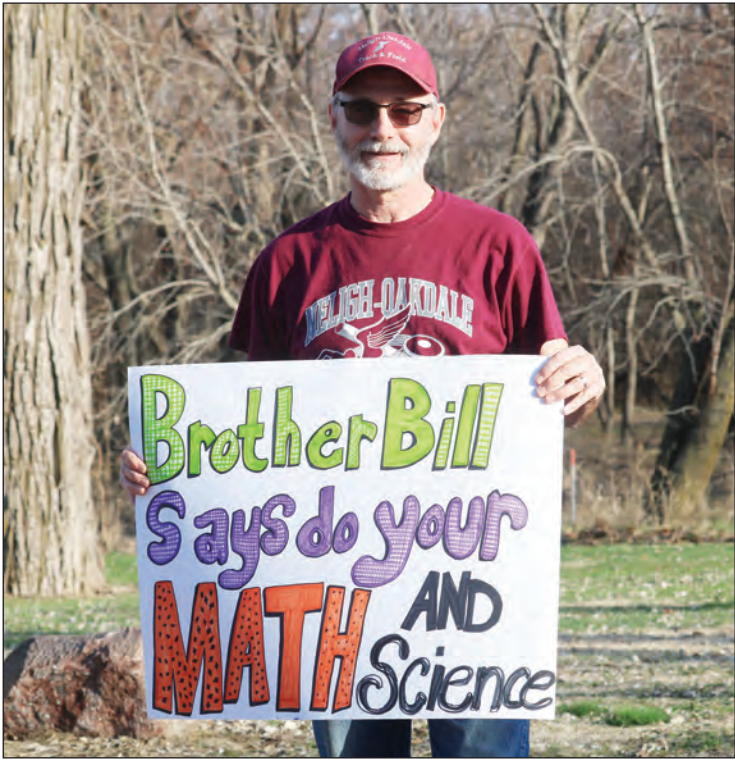 Neligh-Oakdale
Track & Field
NELIGH-OAKDALE
Brother Bill
Says do your
MATH AND
Science